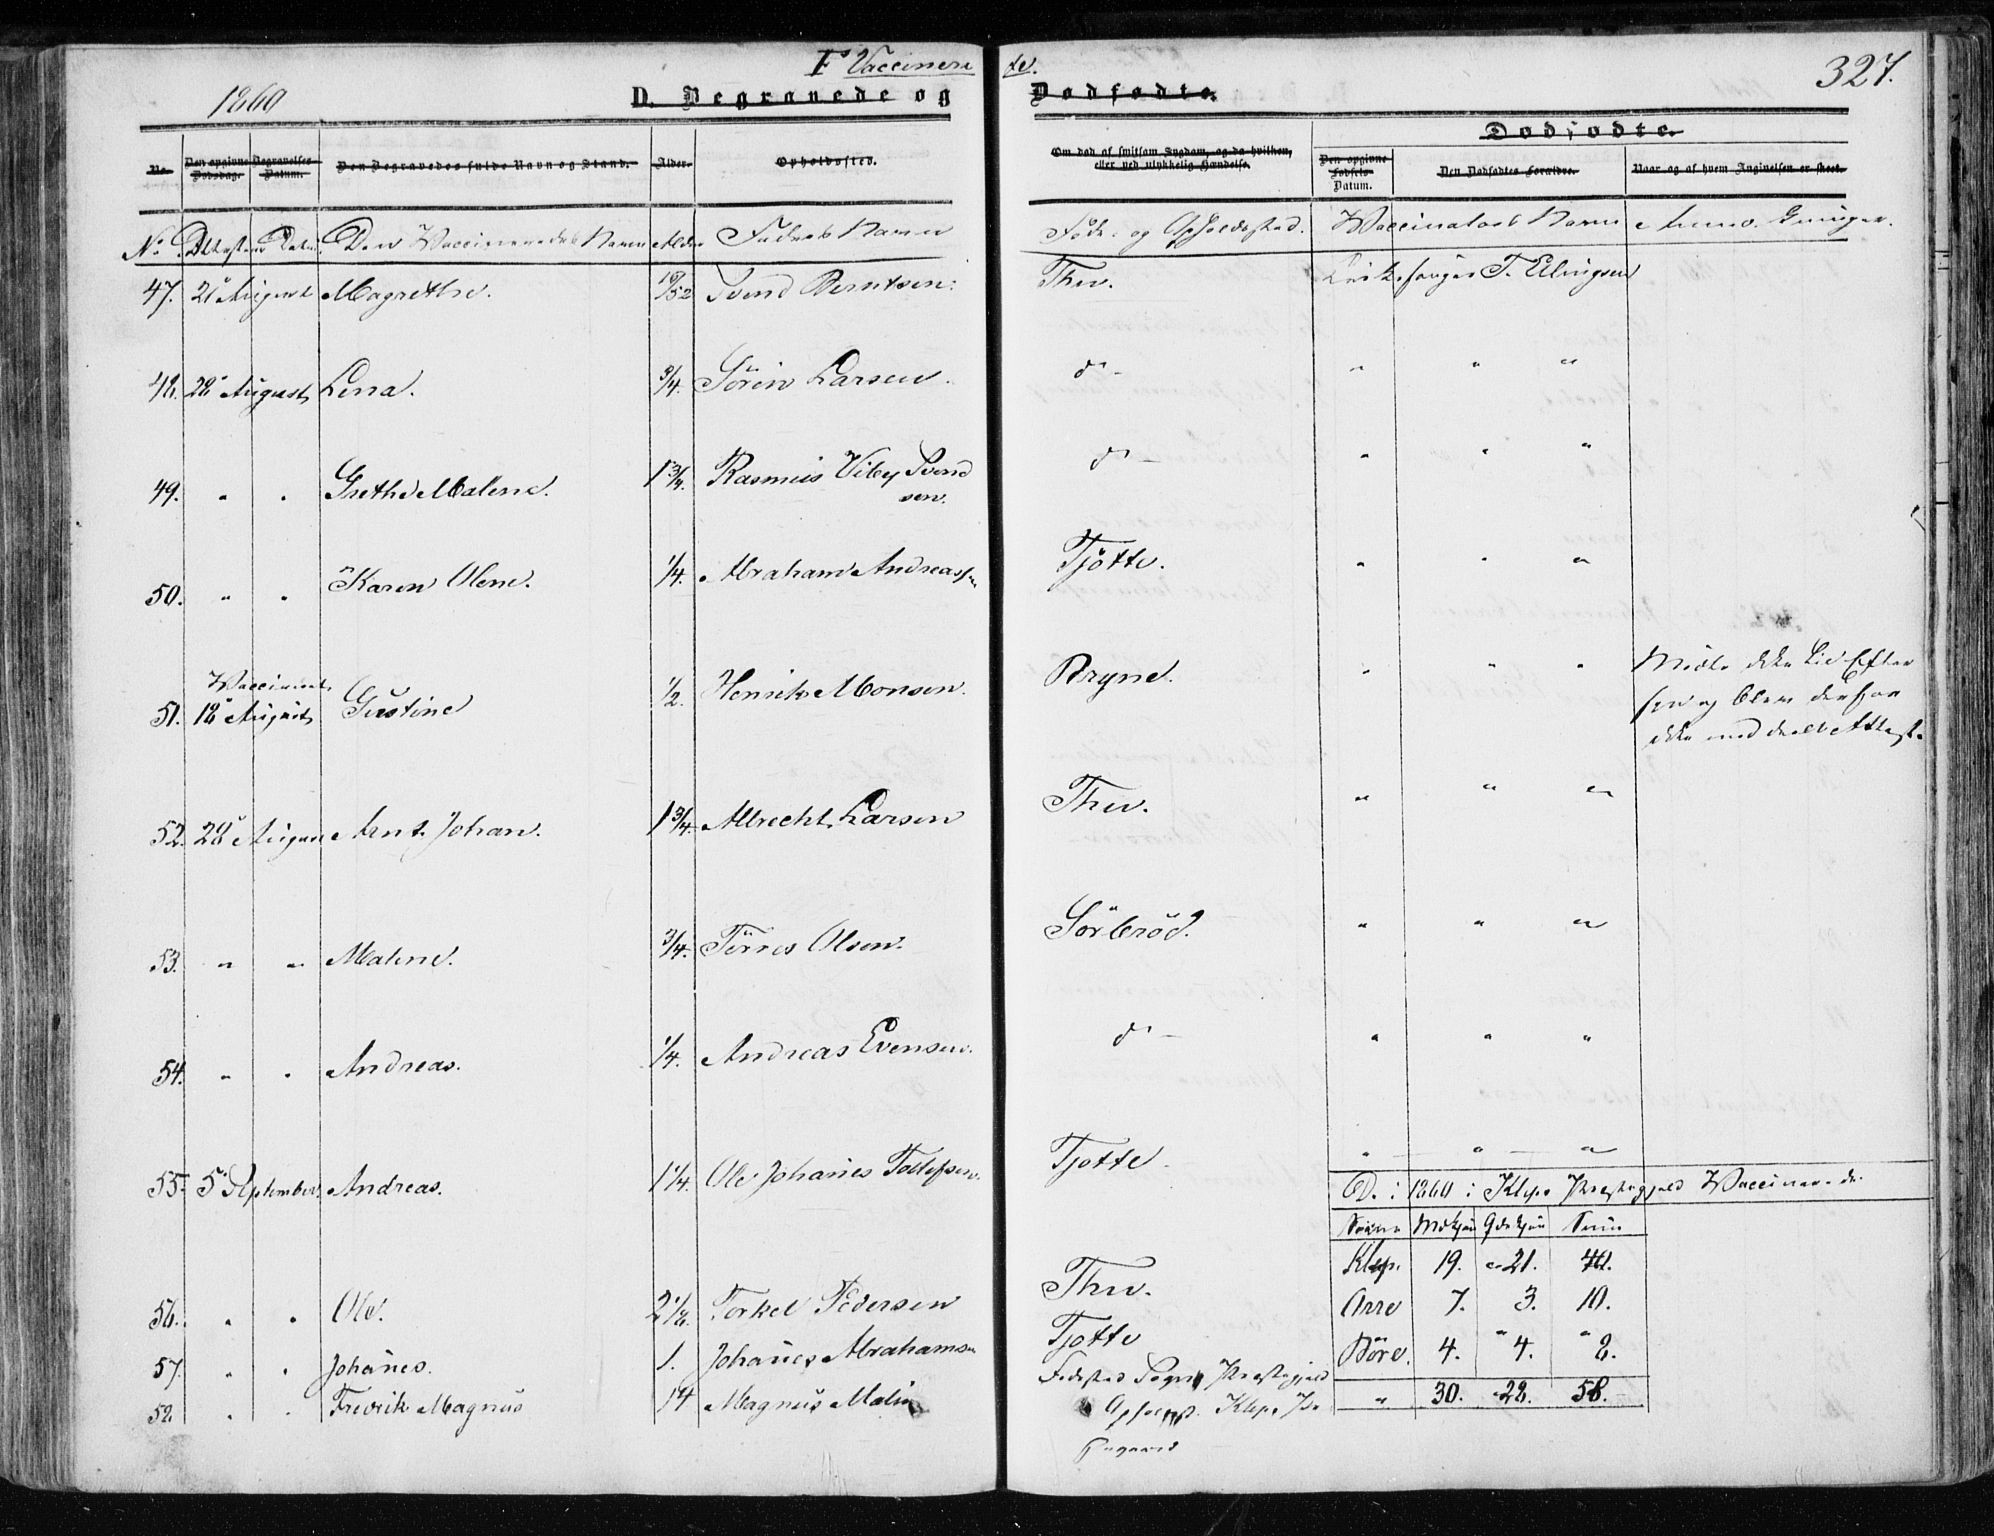 1860
F. Vaccinere
de.
327.
D. Begravede og
Dødfødte.
Dødfødte.
No.
Den opgivne Dødsdag.
Begravelses-Datum.
Den Begravedes fulde Navn og Stand.
Alder.
Opholdssted.
Om død af smitsom Sygdom, og da hvilken,
eller ved ulykkelig Hændelse.
Den opgivne Fødsels-Datum.
Den Dødfødtes Forældre.
Naar og af hvem Angivelsen er skeet.
No. Attestens Datum. Den Vaccineredes Navn Alder Fadrens Navn
Føde- og Opholdssted. Vaccinators Navn Anmærkninger.
47. 21 August Magrethe. 10/52 Svend Berntsen. Thu. Kirkesanger T. Elingsen
48. 28 August Lena. 3/4. Sørin Larsen. do - " " "
49. " " Grethe Malene. 1 3/4. Rasmus Viby Svend
sen. do - " " "
50. " " Karen Olene. 1/4. Abraham Andreassen Tjøtte. " " "
Vaccineret
51. 18 August Gustine 1/2. Henrik Monsen. Bryne. " " " Mødte ikke til Efter
syn og blev derfor
ikke meddeelt Attest.
52. 28 August Arnt Johan. 1 3/4. Albrecht Larsen Thu. " " "
53. " " Malene. 3/4. Tørres Olsen. Sørbrød. " " "
54. " " Andreas. 1/4. Andreas Evensen. do - " " "
55. 5 September Andreas. 1 1/4. Ole Johanes Tollefsen. Tjotte. " " "
56. " " Ole. Torkel Pedersen Thu.
57. " " Johanes. 1. Johanes Abrahamsen Tjotte
58 " " Fredrik Magnus 14 Magnus Malin Fødested Sogn Præstegjeld
Opholdst. Klep Pr
1860 i Klep Præstegjeld Vaccinerede
Sogne Mdkjøn Qdekjøn Sum
Klep. 19. 21. 40.
Orre 7. 3. 10.
Bore. 4. 4. 8.
" 30. 28. 58.